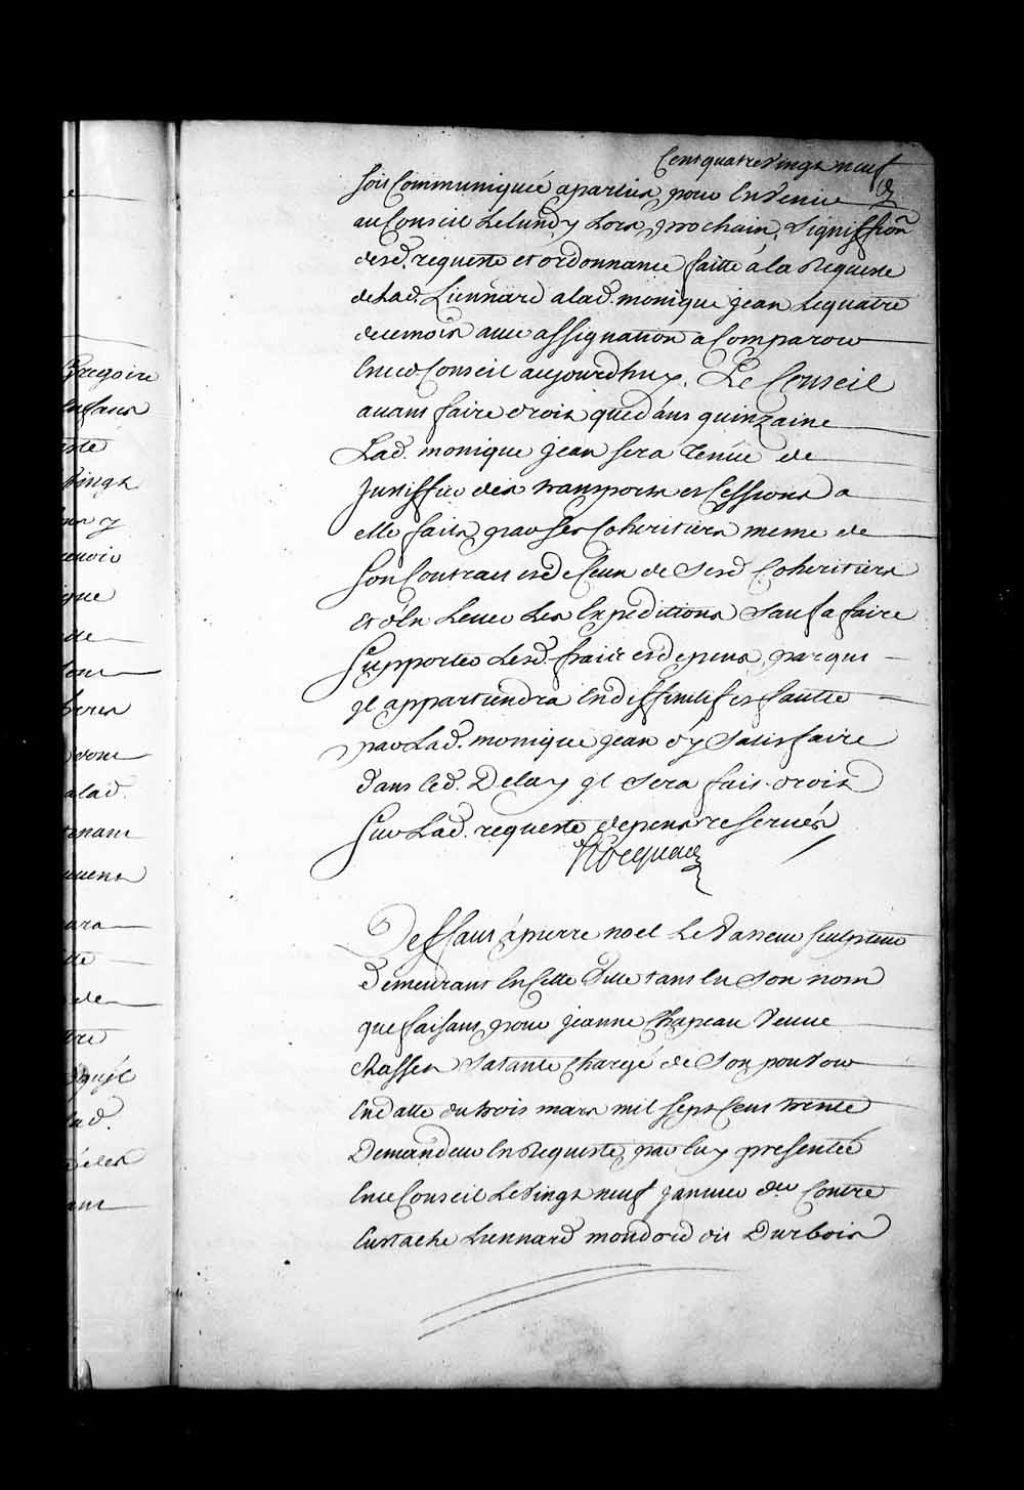 Cent quatre Vingt neuf
soit Communiquée a partie pour En Venir
au Conseil Le lundy Lors prochain, Signiff̃ion
desd. requeste et ordonnance faitte a la Requeste
de Lad. Liennard a lad. monique jean Le quatre
de ce mois avec assignation a Comparoir
En ced Conseil aujourdhuy. Le Conseil
avant faire droit que dans quinzaine
Lad. monique jean sera tenüe de
Justiffier des transports et Cessions a
elle faits par ses Coheritiers meme de
son Contract et de Ceux de Sesd Coheritiers
Et d'En Lever Les Expeditions sauf a faire
Supporter Lesd. frais et depens par qui
jl appartiendra En deffinitif et faute
par Lad. monique jean d'y Satisfaire
dans led. Delay jl sera fait droit
sur Lad. requeste depens reservés
Hocquart
Deffaut a pierre noel Le Vasseur sculpteur
demeurant En Cette Ville tant En Son nom
que faisant pour jeanne Chapeau Veuve
Chasser Sa tante Chargé de Son pouvoir
En datte du trois mars mil sept Cent trente
Demandeur En Requeste par luy presentée
En ce Conseil Le Vingt neuf janvier dr. Contre
Eustache Liennard mondord dit Durbois
Gregoire
Enfans
Vingt
que
de
alad.
tenant
quens
de
qujl
ad.